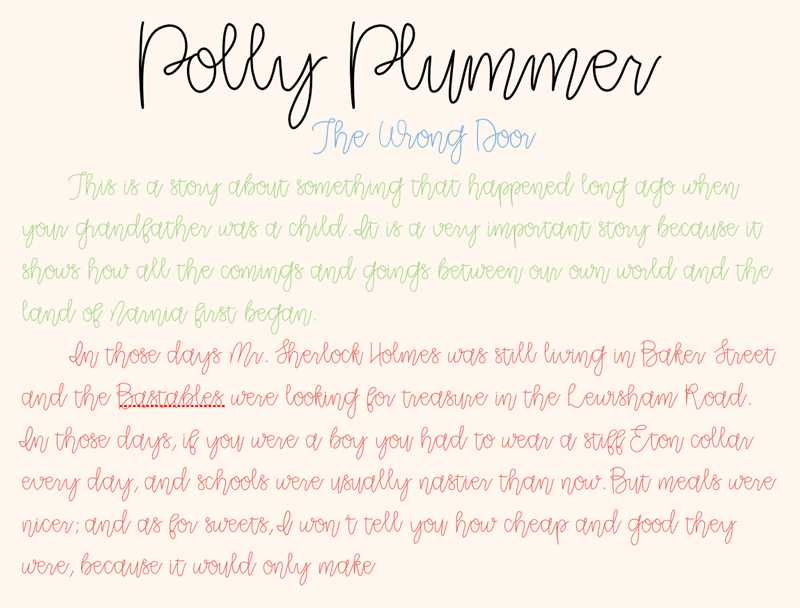 Polly Plummer
The Wrong Door
This is a story about something that happened long ago when
your grandfather was a child.It is a very important story because it
shows how all the comings and goings between our own world and the
land of Narnia first began.
In those days Mr. Sherlock Holmes was still living in Baker Street
and the Bastables were looking for treasure in the Lewisham Road.
In those days, if you were a boy you had to wear a stiff Eton collar
every day, and schools were usually nastier than now.But meals were
nicer; and as for sweets,I won't tell you how cheap and good they
were, because it would only make